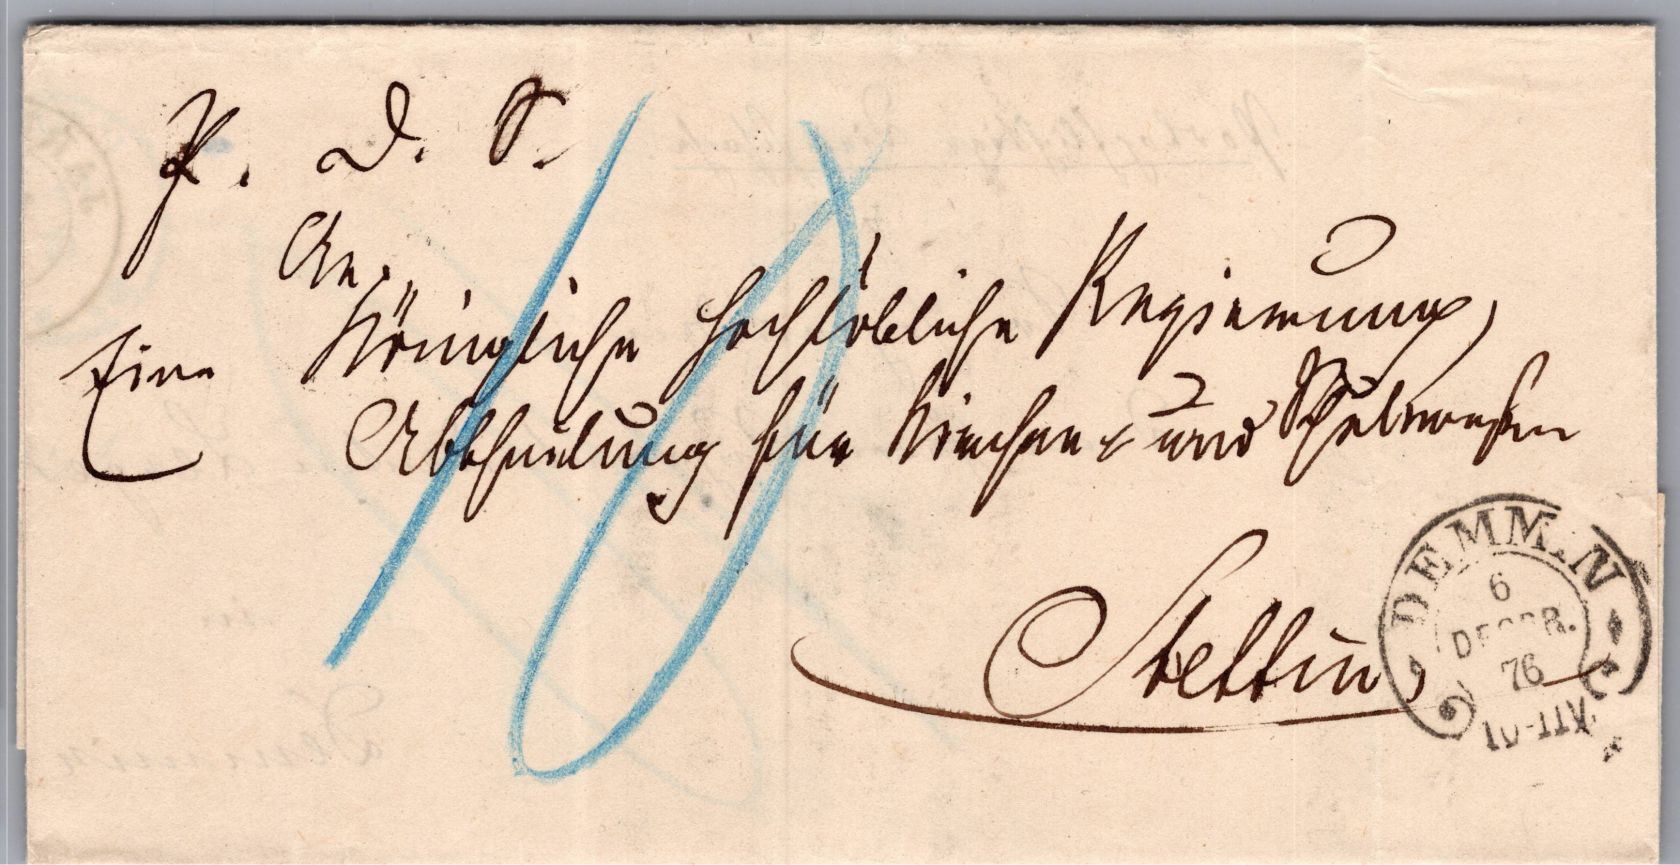 P. D. S.
An
Eine Königliche Hochlöbliche Regierung,
Abtheilung für Kirchen- und Schulwesen
Stettin,
10
DEMMIN
6
DECBR.
76
10-11V.